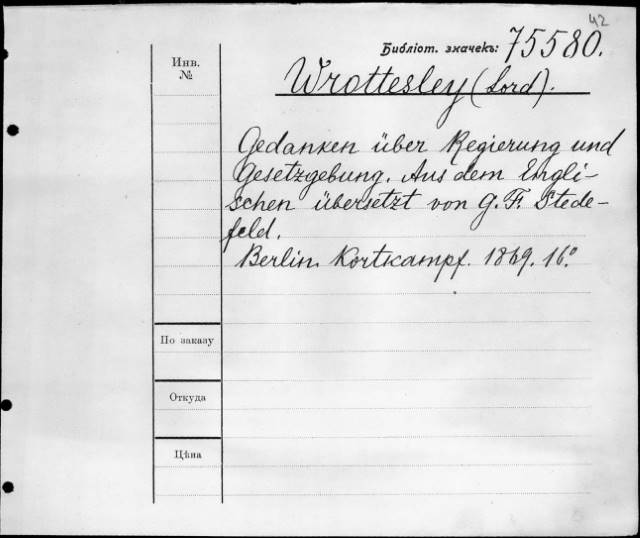 42
Библіот. значекъ: 75580.
Инв.
№
Wrottesley (Lord).
Gedanken über Regierung und
Gesetzgebung. Aus dem Engli-
schen übersetzt von G. F. Stede-
feld.
Berlin. Kortkampf. 1869. 16°
По заказу
Откуда
Цѣна